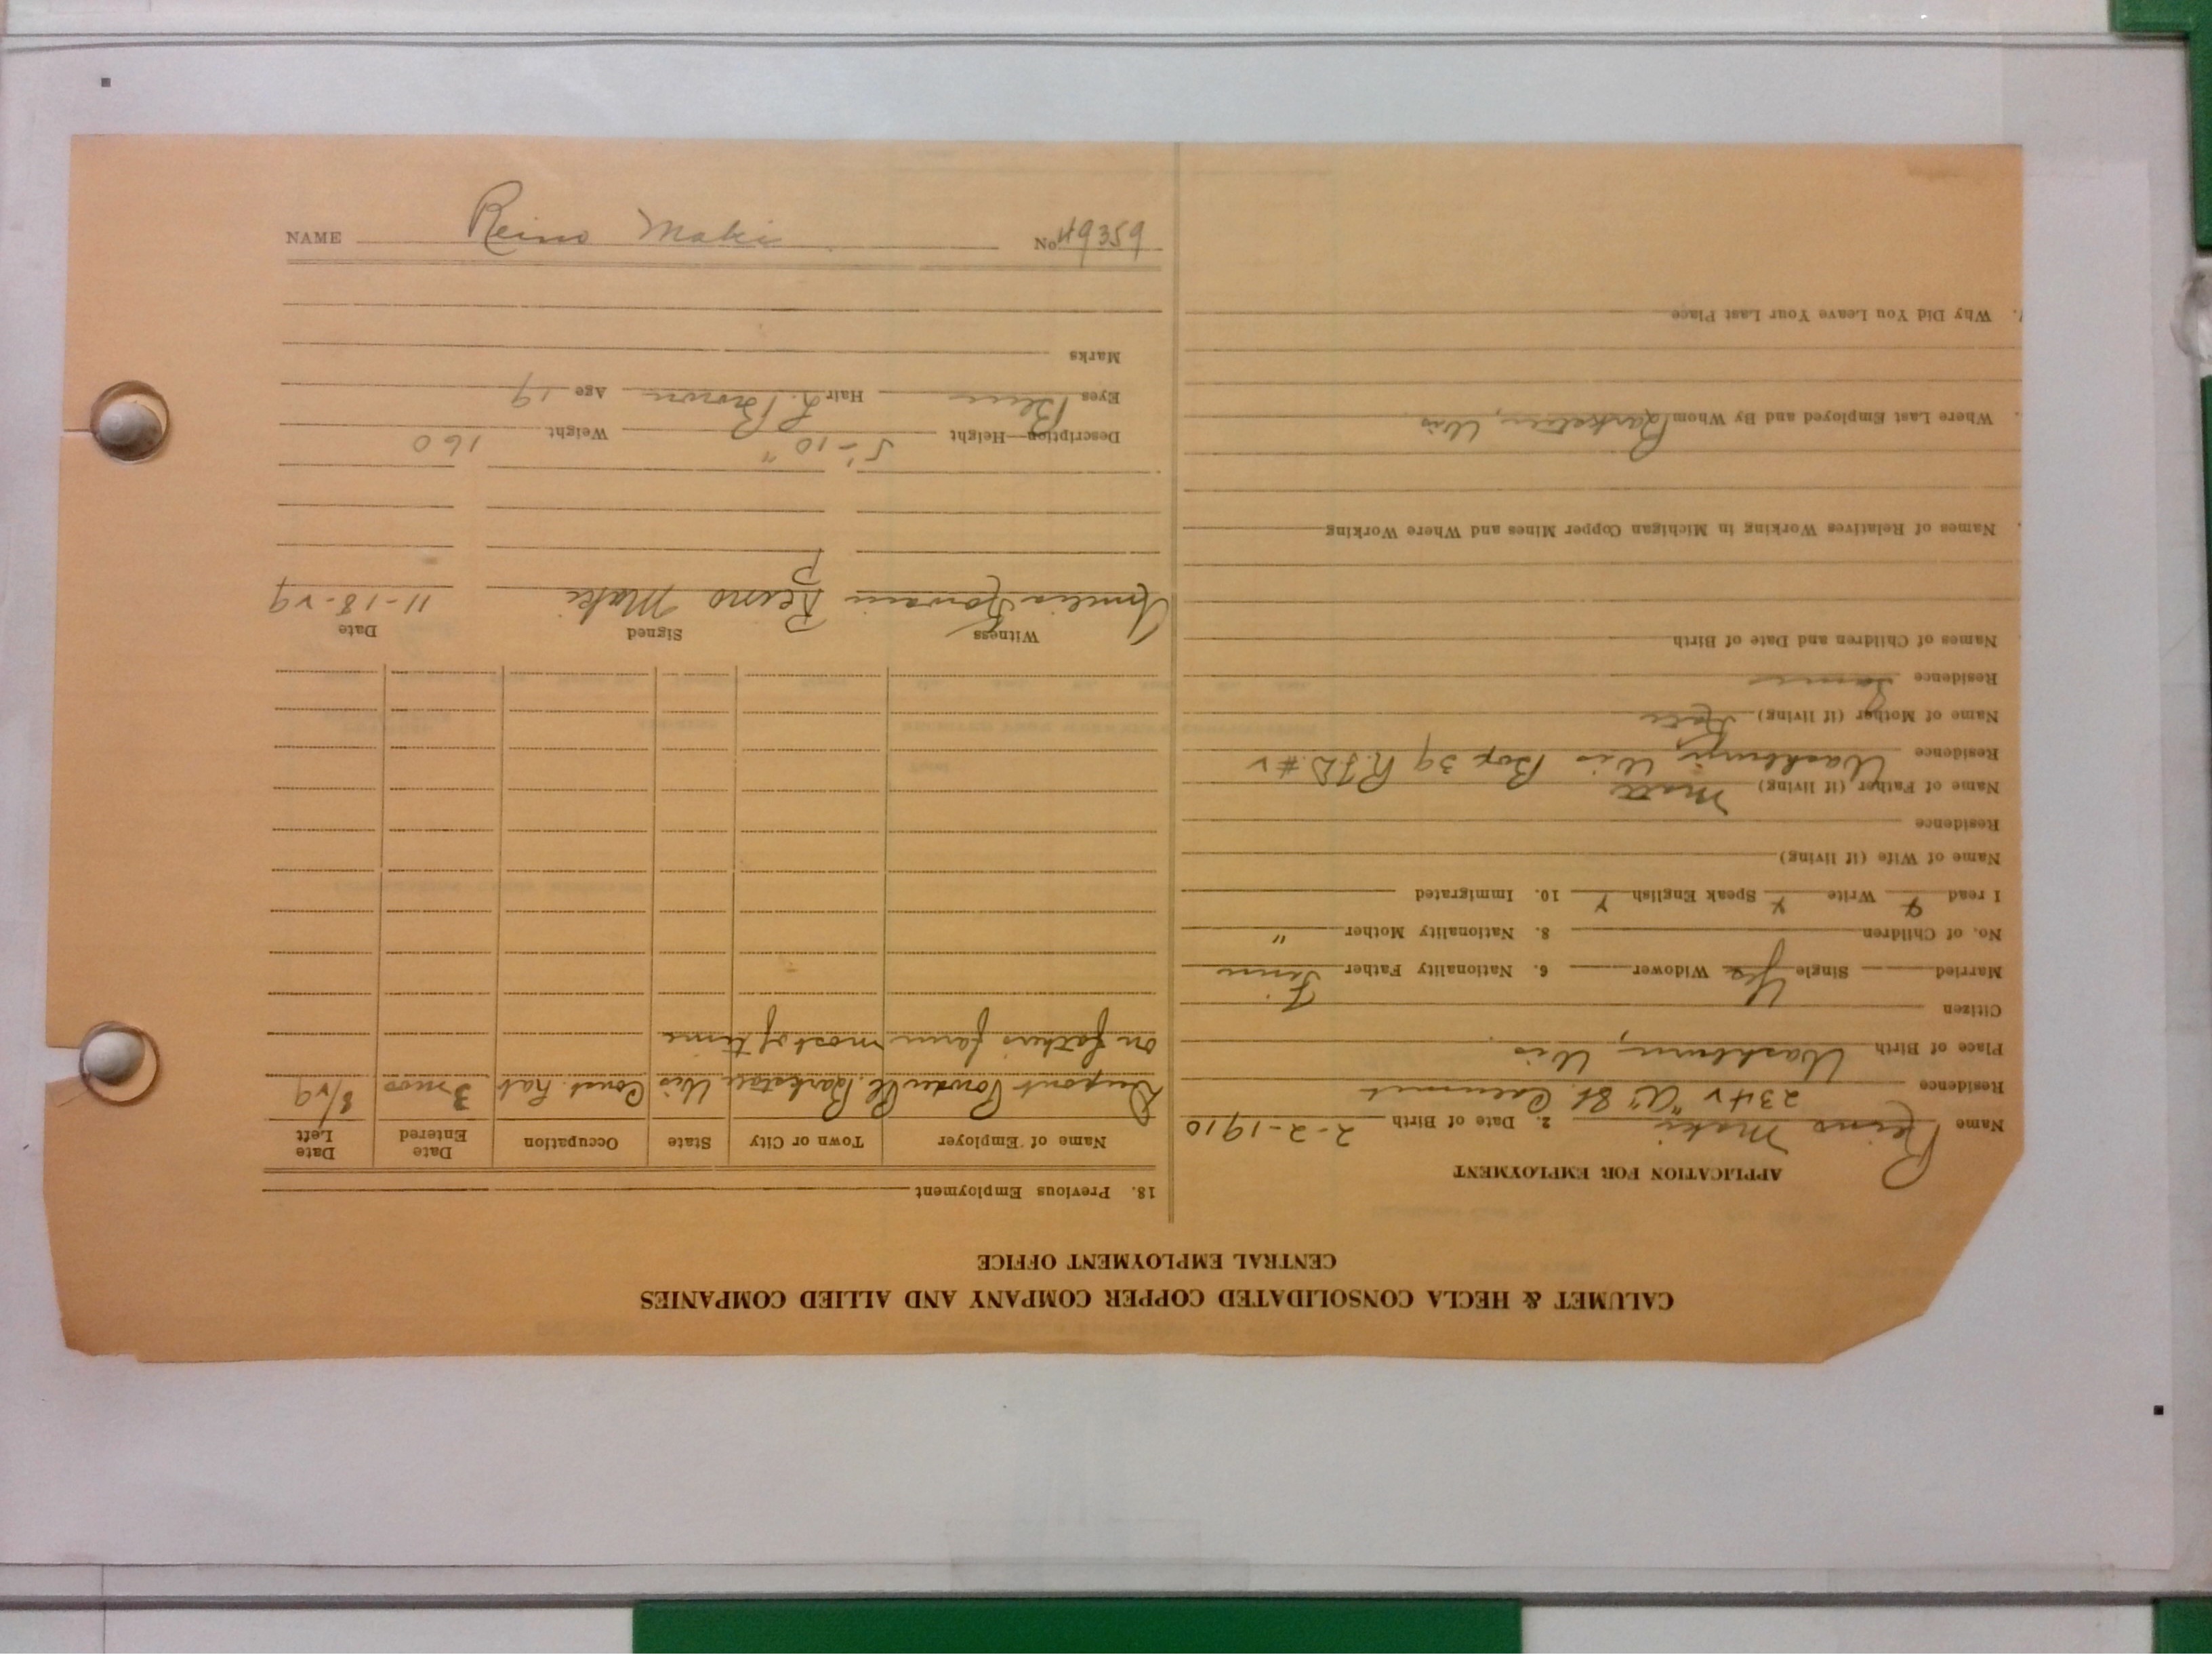 CALUMET & HECLA CONSOLIDATED COPPER COMPANY AND ALLIED COMPANIES
CENTRAL EMPLOYMENT OFFICE
APPLICATION FOR EMPLOYMENT
Name Reino Maki 2. Date of Birth 2-2-1910
Residence "A" St. Calumet
Place of Birth Washburn, Wis
Citizen Yes
Married Single Widower 6. Nationality Father Finn
No. of Children 8. Nationality Mother "
I read Write Speak English 10. Immigrated
Name of Wife (if living)
Residence
Name of Father (if living) Matt
Residence Washburn, Wis Box 39 R.F.D.
Name of Mother (if living)
Residence Same
Names of Children and Date of Birth
Names of Relatives Working in Michigan Copper Mines and Where Working
Where Last Employed and By Whom Barksdale, Wis
Why Did You Leave Your Last Place
18. Previous Employment
Name of Employer Town or City State Occupation Date Entered Date Left
Dupont Powder Co. Barksdale Wis Const. Lab 3 mos 8/29
on fathers farm most of time
Witness Signed Date
Amelia Reino Maki 11-18-29
Description—Height 5'-10" Weight 160
Eyes Blue Hair L. Brown Age 19
Marks
NAME Reino Maki No 49359